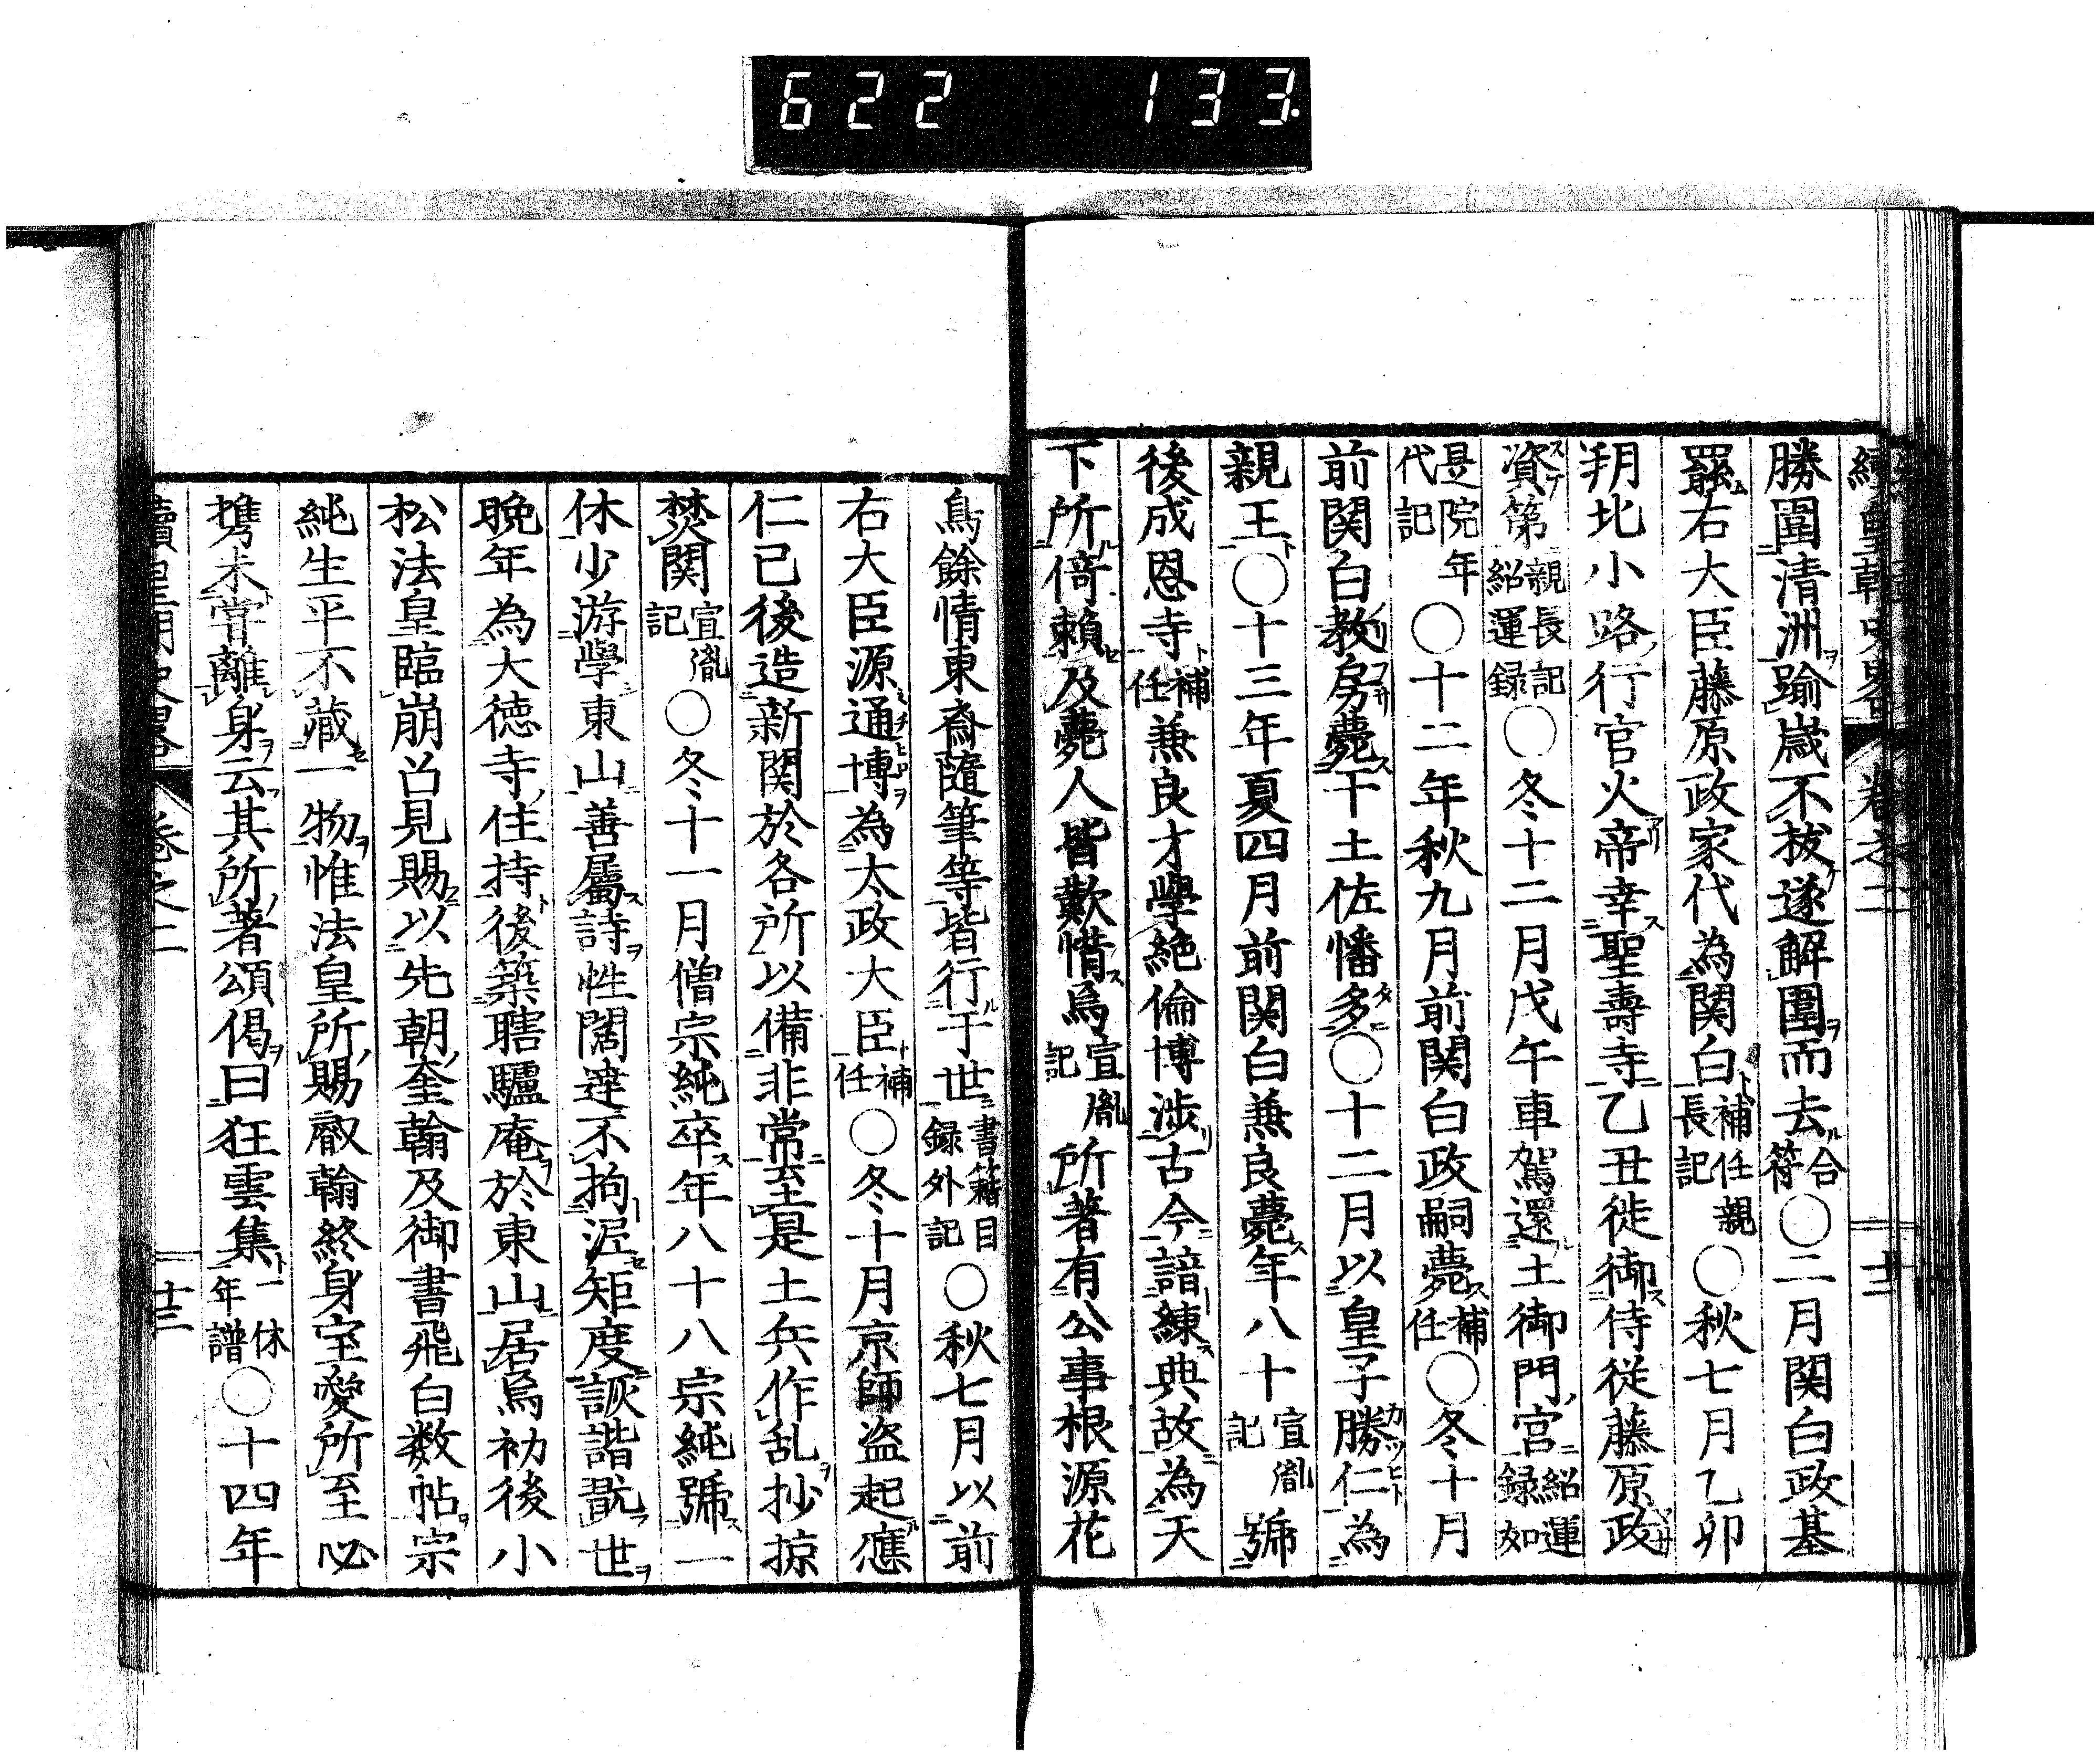 622 133
續皇朝史畧 卷之二
勝圍清洲踰歳不拔遂解圍而去合符〇二月関白政基
罷右大臣藤原政家代為関白補任親長記〇秋七月乙卯
朔北小路行官火帝幸聖壽寺乙丑徙御侍従藤原政
資第親長記紹運録〇冬十二月戊午車駕還土御門宮紹運録如
是院年代記〇十二年秋九月前関白政嗣薨補任〇冬十月
前関白教房薨于土佐幡多〇十二月以皇子勝仁為
親王〇十三年夏四月前関白兼良薨年八十宣胤記號
後成恩寺補任兼良才學絶倫博渉古今諳練典故為天
下所倚頼及薨人皆歎惜焉宣胤記所著有公事根源花
鳥餘情東斎随筆等皆行于世書籍目録外記〇秋七月以前
右大臣源通博為太政大臣補任〇冬十月京師盗起應
仁已後造新関於各所以備非常至是土兵作乱抄掠
焚関宣胤記〇冬十一月僧宗純卒年八十八宗純號一
休少游學東山善屬詩性闊達不拘泥矩度詼諧翫世
晩年為大徳寺住持後築瞎驢庵於東山居焉初後小
松法皇臨崩召見賜以先朝奎翰及御書飛白数帖宗
純生平不藏一物惟法皇所賜叡翰終身宝愛所至必
携未甞離身云其所著頌偈曰狂雲集一休年譜〇十四年
續皇朝史畧 卷之二 十三